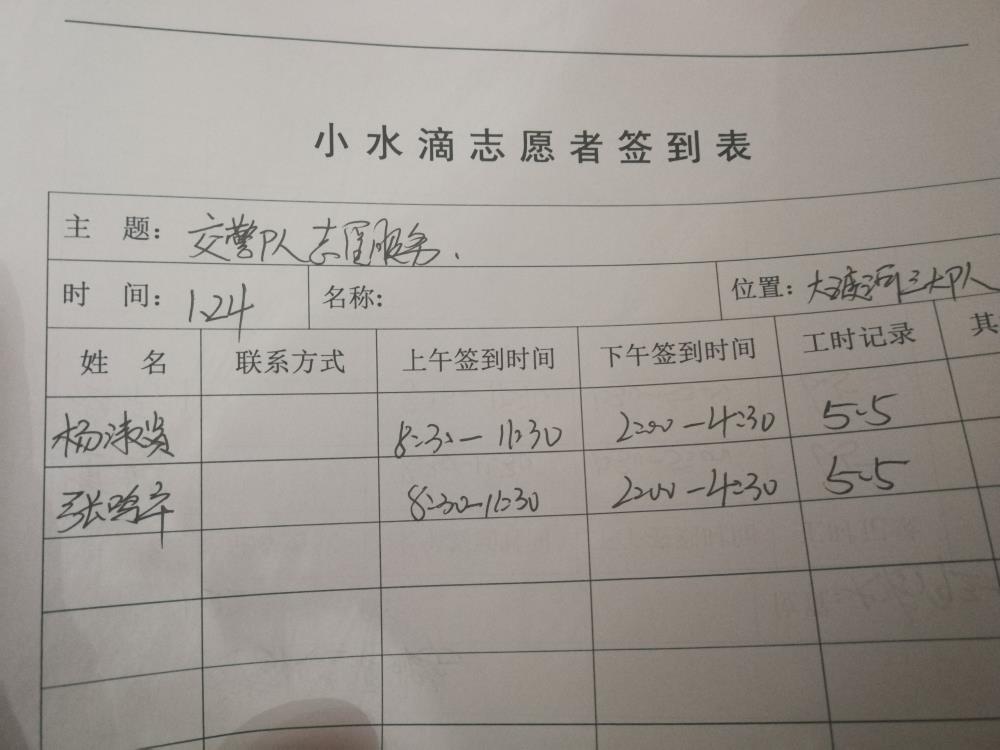 小水滴志愿者签到表
主 题: 交警队志愿服务.
时 间: 1.24 名称: 位置: 大渡河三大队
姓 名 联系方式 上午签到时间 下午签到时间 工时记录 其
杨 8:30-11:30 2:00-4:30 5.5
张鸣 8:30-11:30 2:00-4:30 5.5